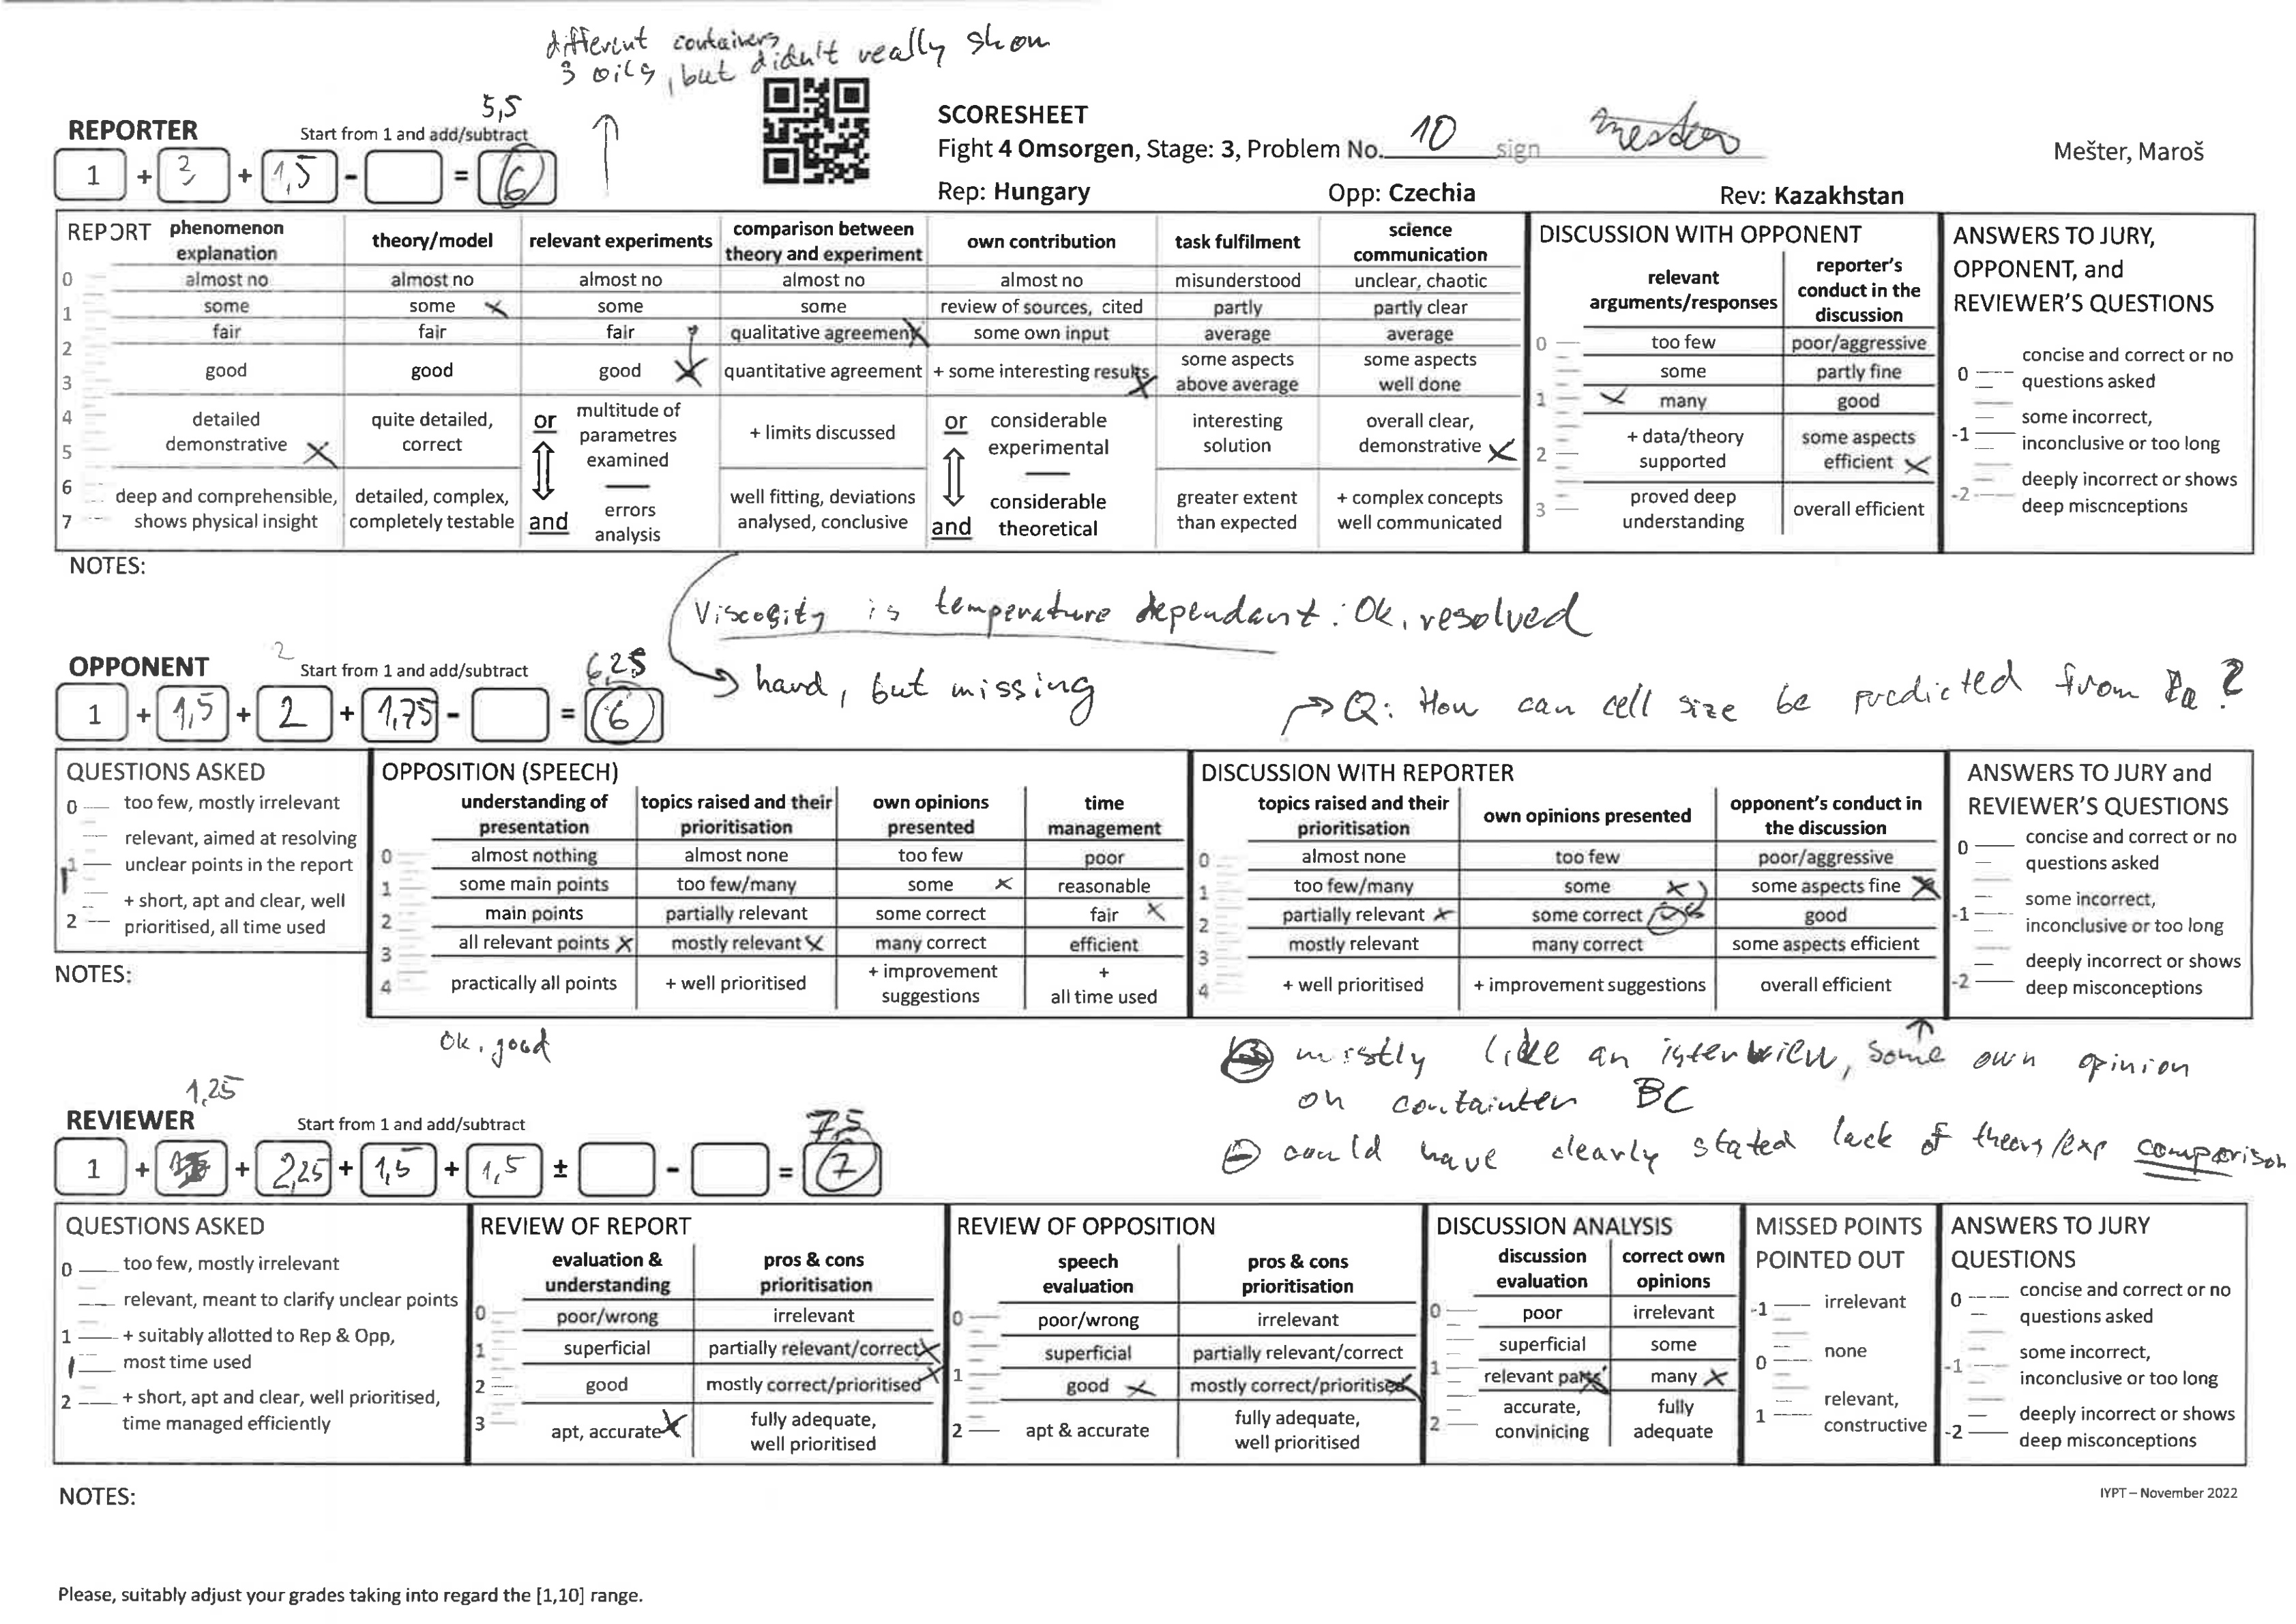 different containers
3 oils, but didn't really show
5,5
REPORTER Start from 1 and add/subtract
1 + 3 + 1,5 - = 6
SCORESHEET
Fight 4 Omsorgen, Stage: 3, Problem No. 10 sign
Mešter, Maroš
Rep: Hungary Opp: Czechia Rev: Kazakhstan
REPORT
phenomenon explanation | theory/model | relevant experiments | comparison between theory and experiment | own contribution | task fulfilment | science communication
0 almost no | almost no | almost no | almost no | almost no | misunderstood | unclear, chaotic
1 some | some | some | some | review of sources, cited | partly | partly clear
fair | fair | fair | qualitative agreement | some own input | average | average
2
3 good | good | good | quantitative agreement | + some interesting results | some aspects above average | some aspects well done
4 detailed demonstrative | quite detailed, correct | or multitude of parametres examined | + limits discussed | or considerable experimental | interesting solution | overall clear, demonstrative
5
6 deep and comprehensible, shows physical insight | detailed, complex, completely testable | and errors analysis | well fitting, deviations analysed, conclusive | and considerable theoretical | greater extent than expected | + complex concepts well communicated
7
DISCUSSION WITH OPPONENT
relevant arguments/responses | reporter's conduct in the discussion
0 too few | poor/aggressive
some | partly fine
1 many | good
2 + data/theory supported | some aspects efficient
3 proved deep understanding | overall efficient
ANSWERS TO JURY,
OPPONENT, and
REVIEWER'S QUESTIONS
0 concise and correct or no
questions asked
some incorrect,
-1 inconclusive or too long
deeply incorrect or shows
-2 deep miscnceptions
NOTES:
Viscosity is temperature dependant: Ok, resolved
hard, but missing
Q: How can cell size be predicted from Ra?
2
6,25
OPPONENT Start from 1 and add/subtract
1 + 1,5 + 2 + 1,75 - = 6
QUESTIONS ASKED
0 too few, mostly irrelevant
relevant, aimed at resolving
1 unclear points in the report
+ short, apt and clear, well
2 prioritised, all time used
NOTES:
OPPOSITION (SPEECH)
understanding of presentation | topics raised and their prioritisation | own opinions presented | time management
0 almost nothing | almost none | too few | poor
1 some main points | too few/many | some | reasonable
2 main points | partially relevant | some correct | fair
3 all relevant points | mostly relevant | many correct | efficient
4 practically all points | + well prioritised | + improvement suggestions | + all time used
Ok, good
DISCUSSION WITH REPORTER
topics raised and their prioritisation | own opinions presented | opponent's conduct in the discussion
0 almost none | too few | poor/aggressive
1 too few/many | some | some aspects fine
2 partially relevant | some correct | good
3 mostly relevant | many correct | some aspects efficient
4 + well prioritised | + improvement suggestions | overall efficient
ANSWERS TO JURY and
REVIEWER'S QUESTIONS
0 concise and correct or no
questions asked
some incorrect,
-1 inconclusive or too long
deeply incorrect or shows
-2 deep misconceptions
mostly like an interview, some own opinion
on containter BC
could have clearly stated lack of theory/exp comparison
1,25
7,5
REVIEWER Start from 1 and add/subtract
1 + + 2,25 + 1,5 + 1,5 ± - = 7
QUESTIONS ASKED
0 too few, mostly irrelevant
relevant, meant to clarify unclear points
1 + suitably allotted to Rep & Opp,
most time used
2 + short, apt and clear, well prioritised,
time managed efficiently
REVIEW OF REPORT
evaluation & understanding | pros & cons prioritisation
0 poor/wrong | irrelevant
1 superficial | partially relevant/correct
2 good | mostly correct/prioritised
3 apt, accurate | fully adequate, well prioritised
REVIEW OF OPPOSITION
speech evaluation | pros & cons prioritisation
0 poor/wrong | irrelevant
superficial | partially relevant/correct
1 good | mostly correct/prioritised
2 apt & accurate | fully adequate, well prioritised
DISCUSSION ANALYSIS
discussion evaluation | correct own opinions
0 poor | irrelevant
superficial | some
1 relevant parts | many
2 accurate, convinicing | fully adequate
MISSED POINTS
POINTED OUT
-1 irrelevant
0 none
relevant,
1 constructive
ANSWERS TO JURY
QUESTIONS
0 concise and correct or no
questions asked
some incorrect,
-1 inconclusive or too long
deeply incorrect or shows
-2 deep misconceptions
NOTES:
IYPT – November 2022
Please, suitably adjust your grades taking into regard the [1,10] range.